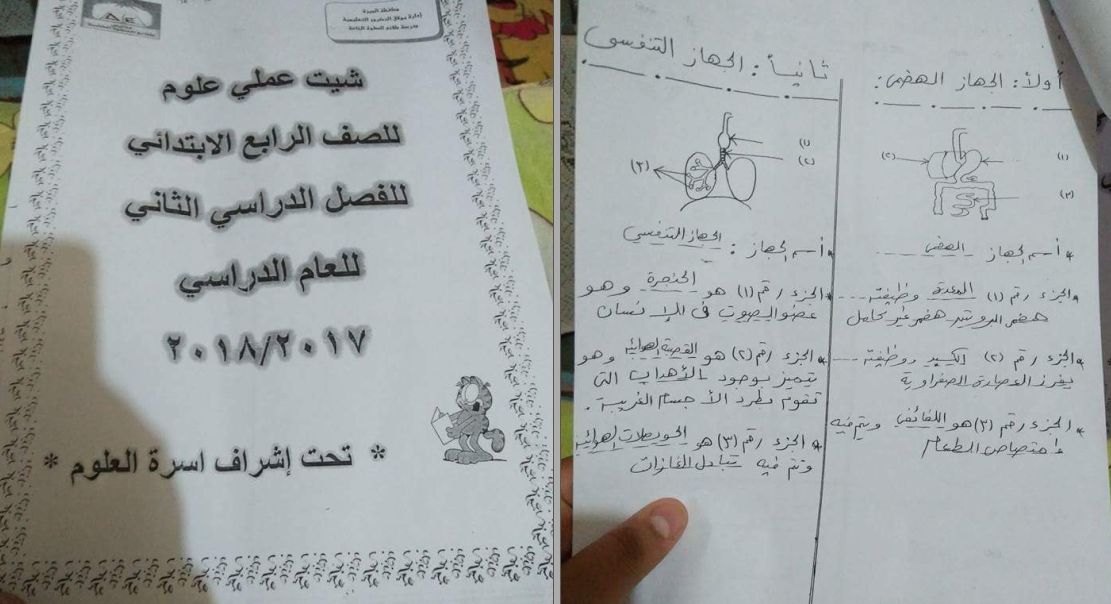 محافظة الجيزة
شيت عملي علوم
للصف الرابع الابتدائي
للفصل الدراسي الثاني
للعام الدراسي
٢٠١٨/٢٠١٧
* تحت إشراف اسرة العلوم *
أولاً: الجهاز الهضمي:
(١)
(٢)
(٣)
* أسم الجهاز الهضمي
* الجزء رقم (١) المعدة وظيفته
هضم البروتين هضم غير كامل
* الجزء رقم (٢) الكبد ووظيفته
يفرز العصارة الصفراوية
* الجزء رقم (٣) هو اللفائفي ويتم فيه
امتصاص الطعام
ثانياً: الجهاز التنفسى
(١)
(٢)
(٣)
* أسم الجهاز: الجهاز التنفسي
* الجزء رقم (١) هو الحنجرة وهو
عضو الصوت فى الإنسان
* الجزء رقم (٢) هو القصبة الهوائية وهو
تتميز بوجود الأهداب التى
تقوم بطرد الأجسام الغريبة.
* الجزء رقم (٣) هو الحويصلات الهوائية
وتتم فيه تبادل الغازات